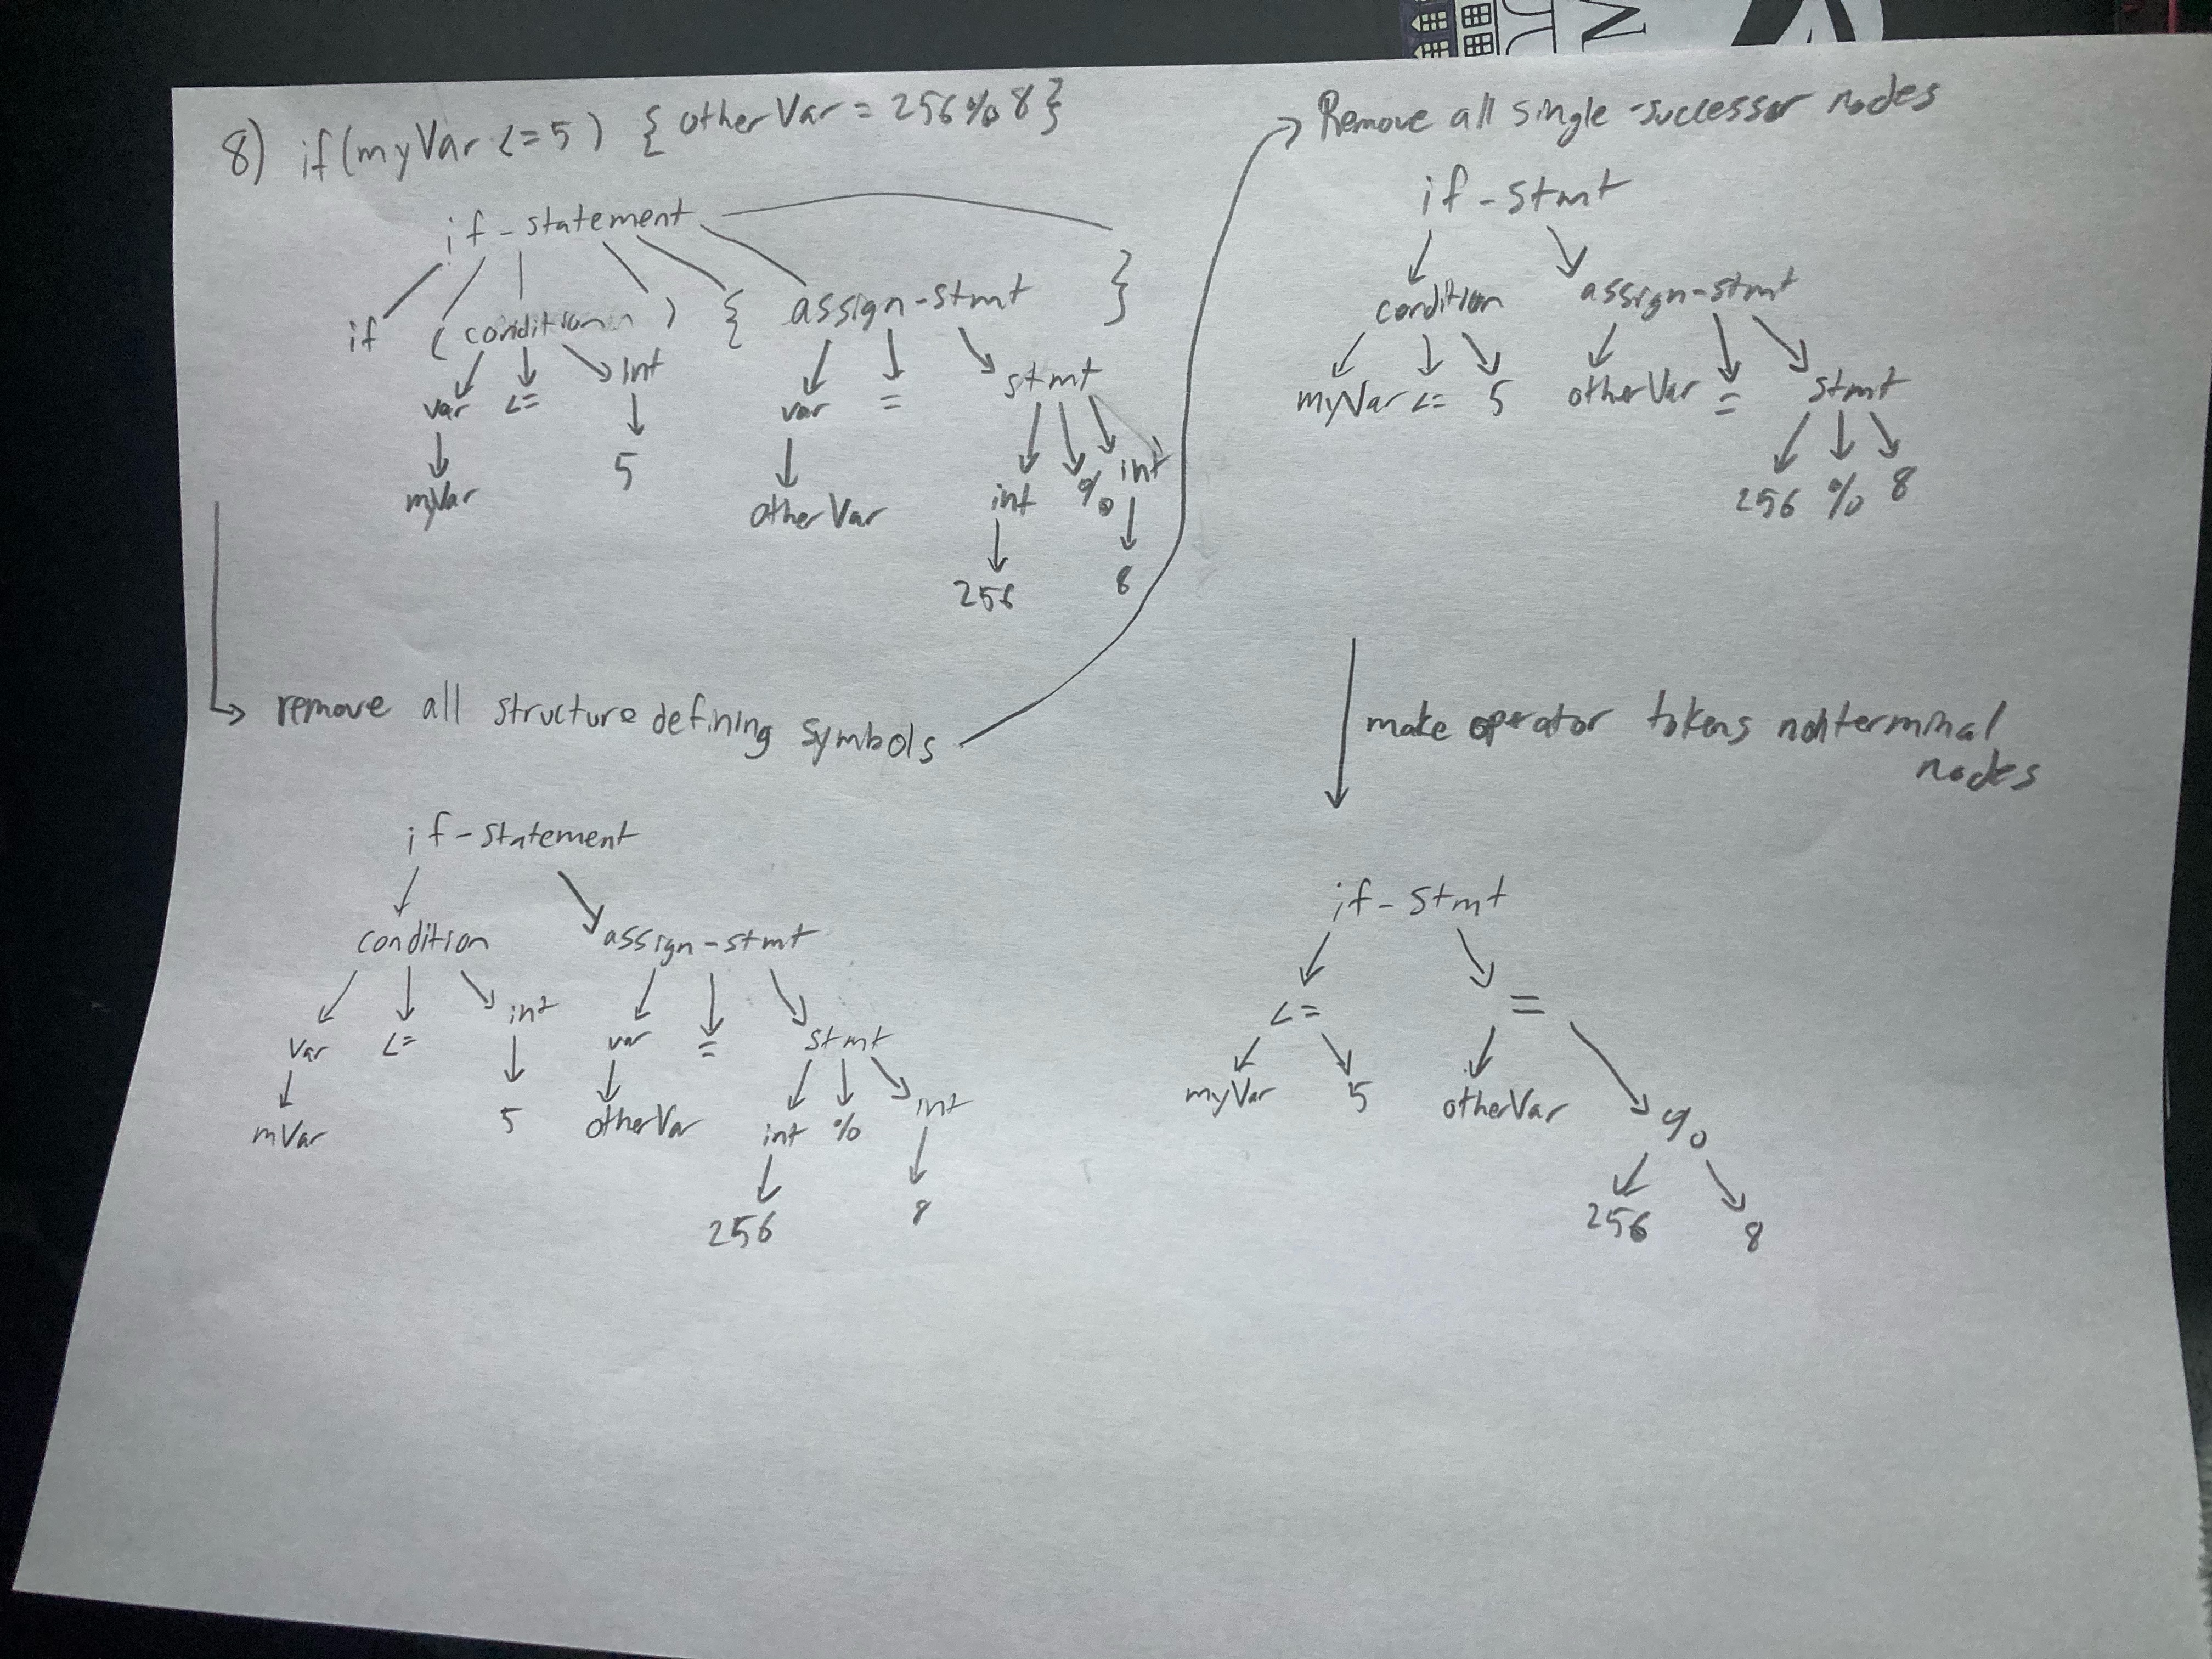 8) if(myVar <= 5) { otherVar = 256 % 8 }
if-statement
if ( condition ) { assign-stmt }
var <= int var = stmt
myVar 5 otherVar int % int
256 8
→ remove all structure defining symbols
if-statement
condition assign-stmt
var <= int var = stmt
mVar 5 otherVar int % int
256 8
→ Remove all single-successor nodes
if-stmt
condition assign-stmt
myVar <= 5 otherVar = stmt
256 % 8
↓ make oprator tokens nonterminal
nodes
if-stmt
<= =
myVar 5 otherVar %
256 8